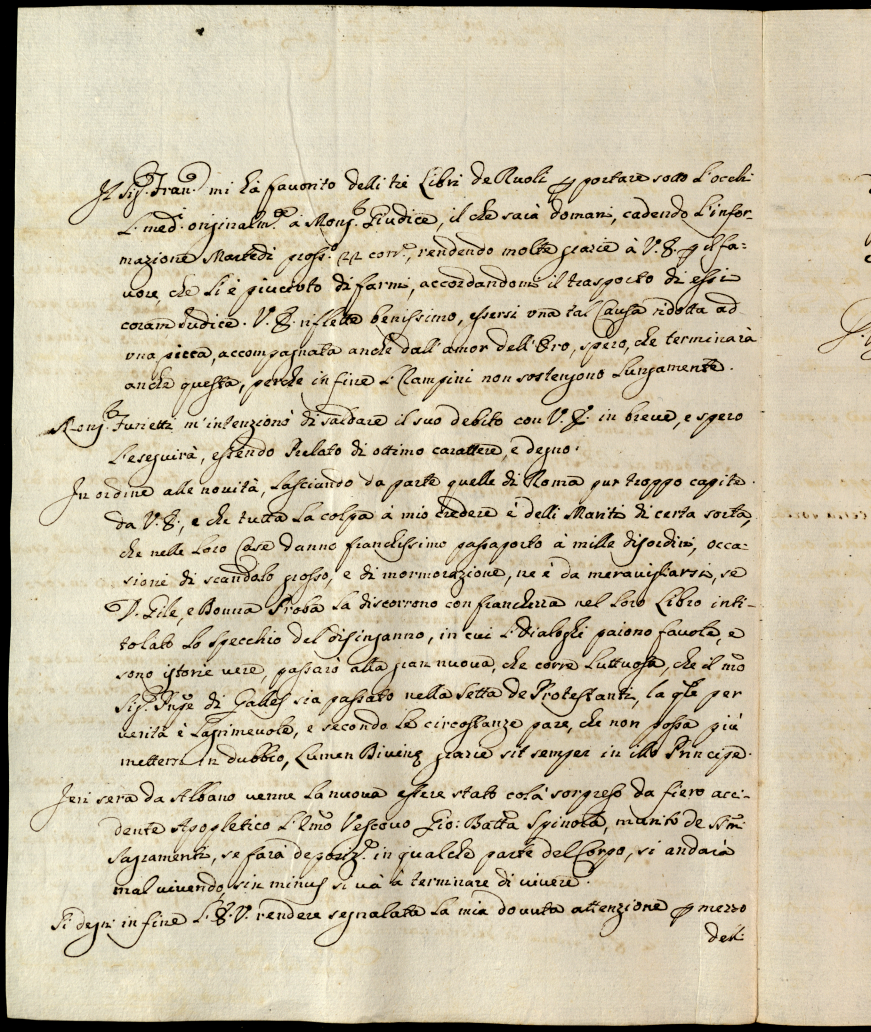 Il Sig.r Fran.co mi hà favorito delli tre Libri de Ruoli p portare sotto l'occhi
l. med.i originalm.te à Mons.r Giudice, il che sarà domani, cadendo l'infor-
mazione Martedi pross.o 22 corr.e, rendendo molte grazie à V.E. p il fa:
uore, che si è giuto di farmi, accordandomi il trasporto di essi
coram Iudice. V.E. riflette benissimo, essersi vna tal Causa ridotta ad
vna picca, accompagnata anche dall'amor dell'Oro, spero, che terminarà
anche questa, perche in fine i Ciampini non sostengono lungamente.
Mons.r Furietti m'intenzionò di saldare il suo debito con V.E. in breue, e spero
l'eseguirà, essendo Prelato di ottimo carattere, e degno.
In ordine alle nouità, lasciando da parte quelle di Roma pur troppo capite
da V.E., e che tutta la colpa à mio credere è delli Mariti di certa sorta,
che nelle loro Case danno franchissimo passaporto à mille disordini, occa-
sioni di scandalo grosso, e di mormorazione, ne è da merauigliarsi, se
D. Gile, e Bonna Proba la discorrono con francherra nel loro Libro inti-
tolato lo specchio del disinganno, in cui i Dialoghi paiono fauole, e
sono istorie vere, passarò alla gran nuoua, che corre luttuosa, che il n̄ro
Sig.r Pnpe di Galles sia passato nella Setta de Protestanti, la qle per
verità è lagrimeuole, e secondo le circostanze pare, che non possa più
mettersi in dubbio, Lumen Diuenę grazie sit semper in illo Principe.
Ieri sera da Albano venne la nuoua essere stato colà sorpreso da fiero acci-
dente Apopletico l'Em̄o Vescouo Gio: Batt̄a Spinola, munito de SSmi
Sagramenti, se farà deposiz.e in qualche parte del Corpo, si andarà
mal viuendo, sin minus si và à terminare di viuere.
Si degni in fine l'E.V. rendere segnalata la mia douuta attenzione p mezzo
dell: